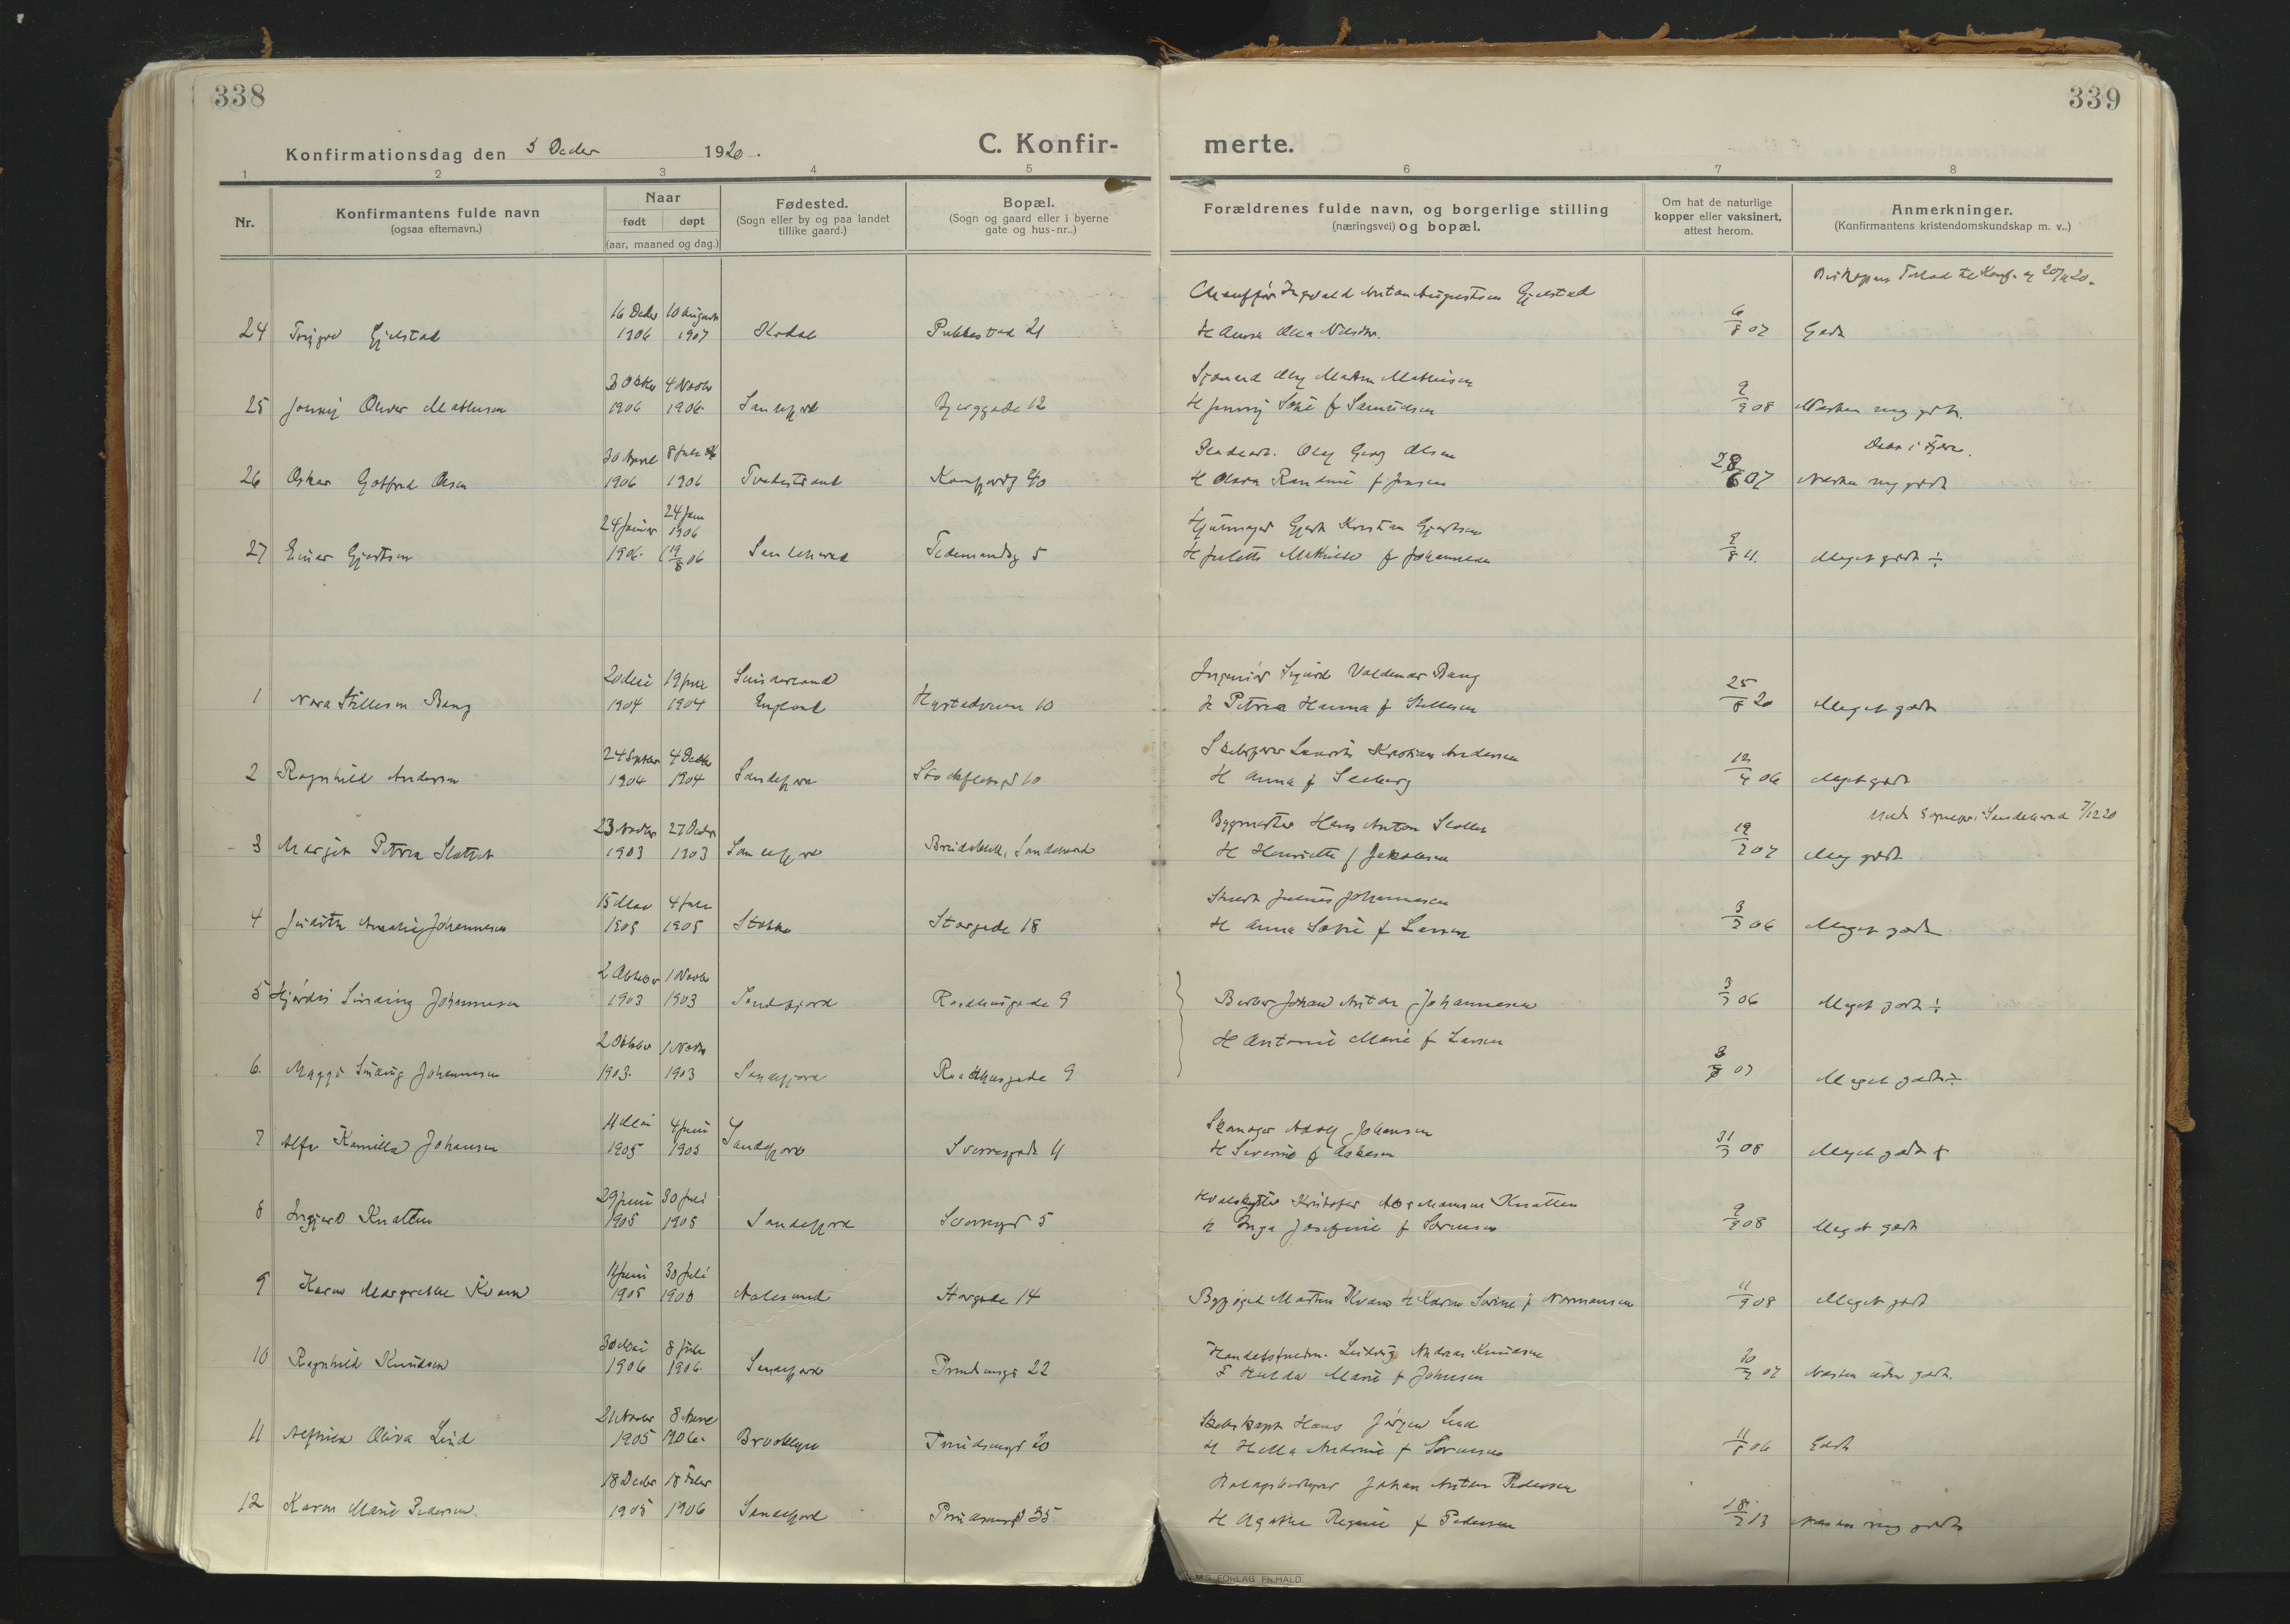 338
339
Konfirmationsdag den 5 Decbr 1920.
C. Konfir-
merte.
1 2 3 4 5 6 7 8
Nr.
Konfirmantens fulde navn
(ogsaa efternavn.)
Naar
født døpt
(aar, maaned og dag.)
Fødested.
(Sogn eller by og paa landet
tillike gaard.)
Bopæl.
(Sogn og gaard eller i byerne
gate og hus-nr..)
Forældrenes fulde navn, og borgerlige stilling
(næringsvei) og bopæl.
Om hat de naturlige
kopper eller vaksinert,
attest herom.
Anmerkninger.
(Konfirmantens kristendomskundskap m. v..)
Chauffør Ingvald Anton Augustsen Gjelstad
16 Decbr 10 August
24 Trygve Gjelstad 1906 1907 Hedal Pukkestad 21
6/8 07 Godt
3 Oktbr 4 Novbr
Sjømand Olaf Martin Mathisen
25 Johnny Oliver Mathisen 1906 1906 Sandefjord Bjerggade 12
H Jenny Sofie f Samuelsen 9/9 08 Næsten meg godt.
30 April 8 Juli
Olaf Georg Olsen
26 Oskar Gotfred Olsen 1906 1906 Tvedestrand Kamfjordg 40
H Olava Randine f Jensen 28/6 07 Næsten meg godt
24 Januar 24 Juni 1906
Hjulmager Gjert Kristian Gjertsen
27 Einar Gjertsen 1906 (19/8 06 Sandeherad Tidemandsg 5
H Julette Mathilde f Johannesen 9/8 11. Meget godt ÷
20 Mai 19 Juni Sunderland
Ingeniør Sigurd Valdemar Bang
1 Nora Stillesen Bang 1904 1904 England Hystadveien 10
H Petrea Hanna f Stillesen 25/8 20 Meget godt
24 Septbr 4 Decbr
Kristian Andersen
2 Ragnhild Andersen 1904 1904 Sandefjord Stockfletsgd 10
H Anna f Seeberg 12/4 06 Meget godt
23 Novbr 27 Decbr
Bygmester Hans Anton
Sandeherad 7/12 20
3 Margit Petrea Slottet 1903 1903 Sandefjord Breidablik, Sandeherad
H Henriette f Jakobsen 19/2 07 Meg godt
15 Mai 4 Juni
Julius Johannesen
4 Judith Amalie Johannesen 1905 1905 Stokke Storgade 18
H Anna Sofie f Larsen 3/3 06 Meget godt
2 Oktober 1 Novbr
5 Hjørdis Sinding Johannesen 1903 1903 Sandefjord Raadhusgade 9
Barber Johan Anton Johannesen 3/3 06 Meget godt ÷
2 Oktober 1 Novbr
H Antonie Marie f Larsen
6. Maggi Sinding Johannesen 1903. 1903 Sandefjord Raadhusgade 9
Meget godt ÷
11 Mai 4 Juni
Skomager Adolf Johansen
7 Alfa Kamilla Johansen 1905 1905 Sandefjord Sverresgade 11
H Severine f Askesen 31/3 08 Meget godt +
29 Juni 30 Juli
Hvalskytter Kristofer Abrahamsen Knatten
8 Ingjerd Knatten 1905 1905 Sandefjord Sverresgd 5
H Inga Josefine f Sørensen 9/9 08 Meget godt
11 Juni 30 Juli
9 Karen Margrethe Kvam 1905 1905 Aalesund Storgade 14
Martin Kvam H Karen Sorine f Normansen 11/9 08 Meget godt
30 Mai 8 Juli
Ludvig Andreas Knudsen
10 Ragnhild Knudsen 1906 1906 Sandefjord Prindsensgd 22
F Hulda Marie f Johnsen Næsten uden godt.
21 Novbr 8 April
Skibskapt Hans Jørgen Lind
11 Alfhild Oliva Lind 1905 1906. Brooklyn Prindsensgd 20
H Hella Andrine f Sørensen 11/8 06 Godt
18 Decbr 18 Febr
Johan Anton Pedersen
12 Karen Marie Pedersen. 1905 1906 Sandefjord Prindsensgd 35
H Agathe Regine f Pedersen 18/2 13 Næsten meg godt